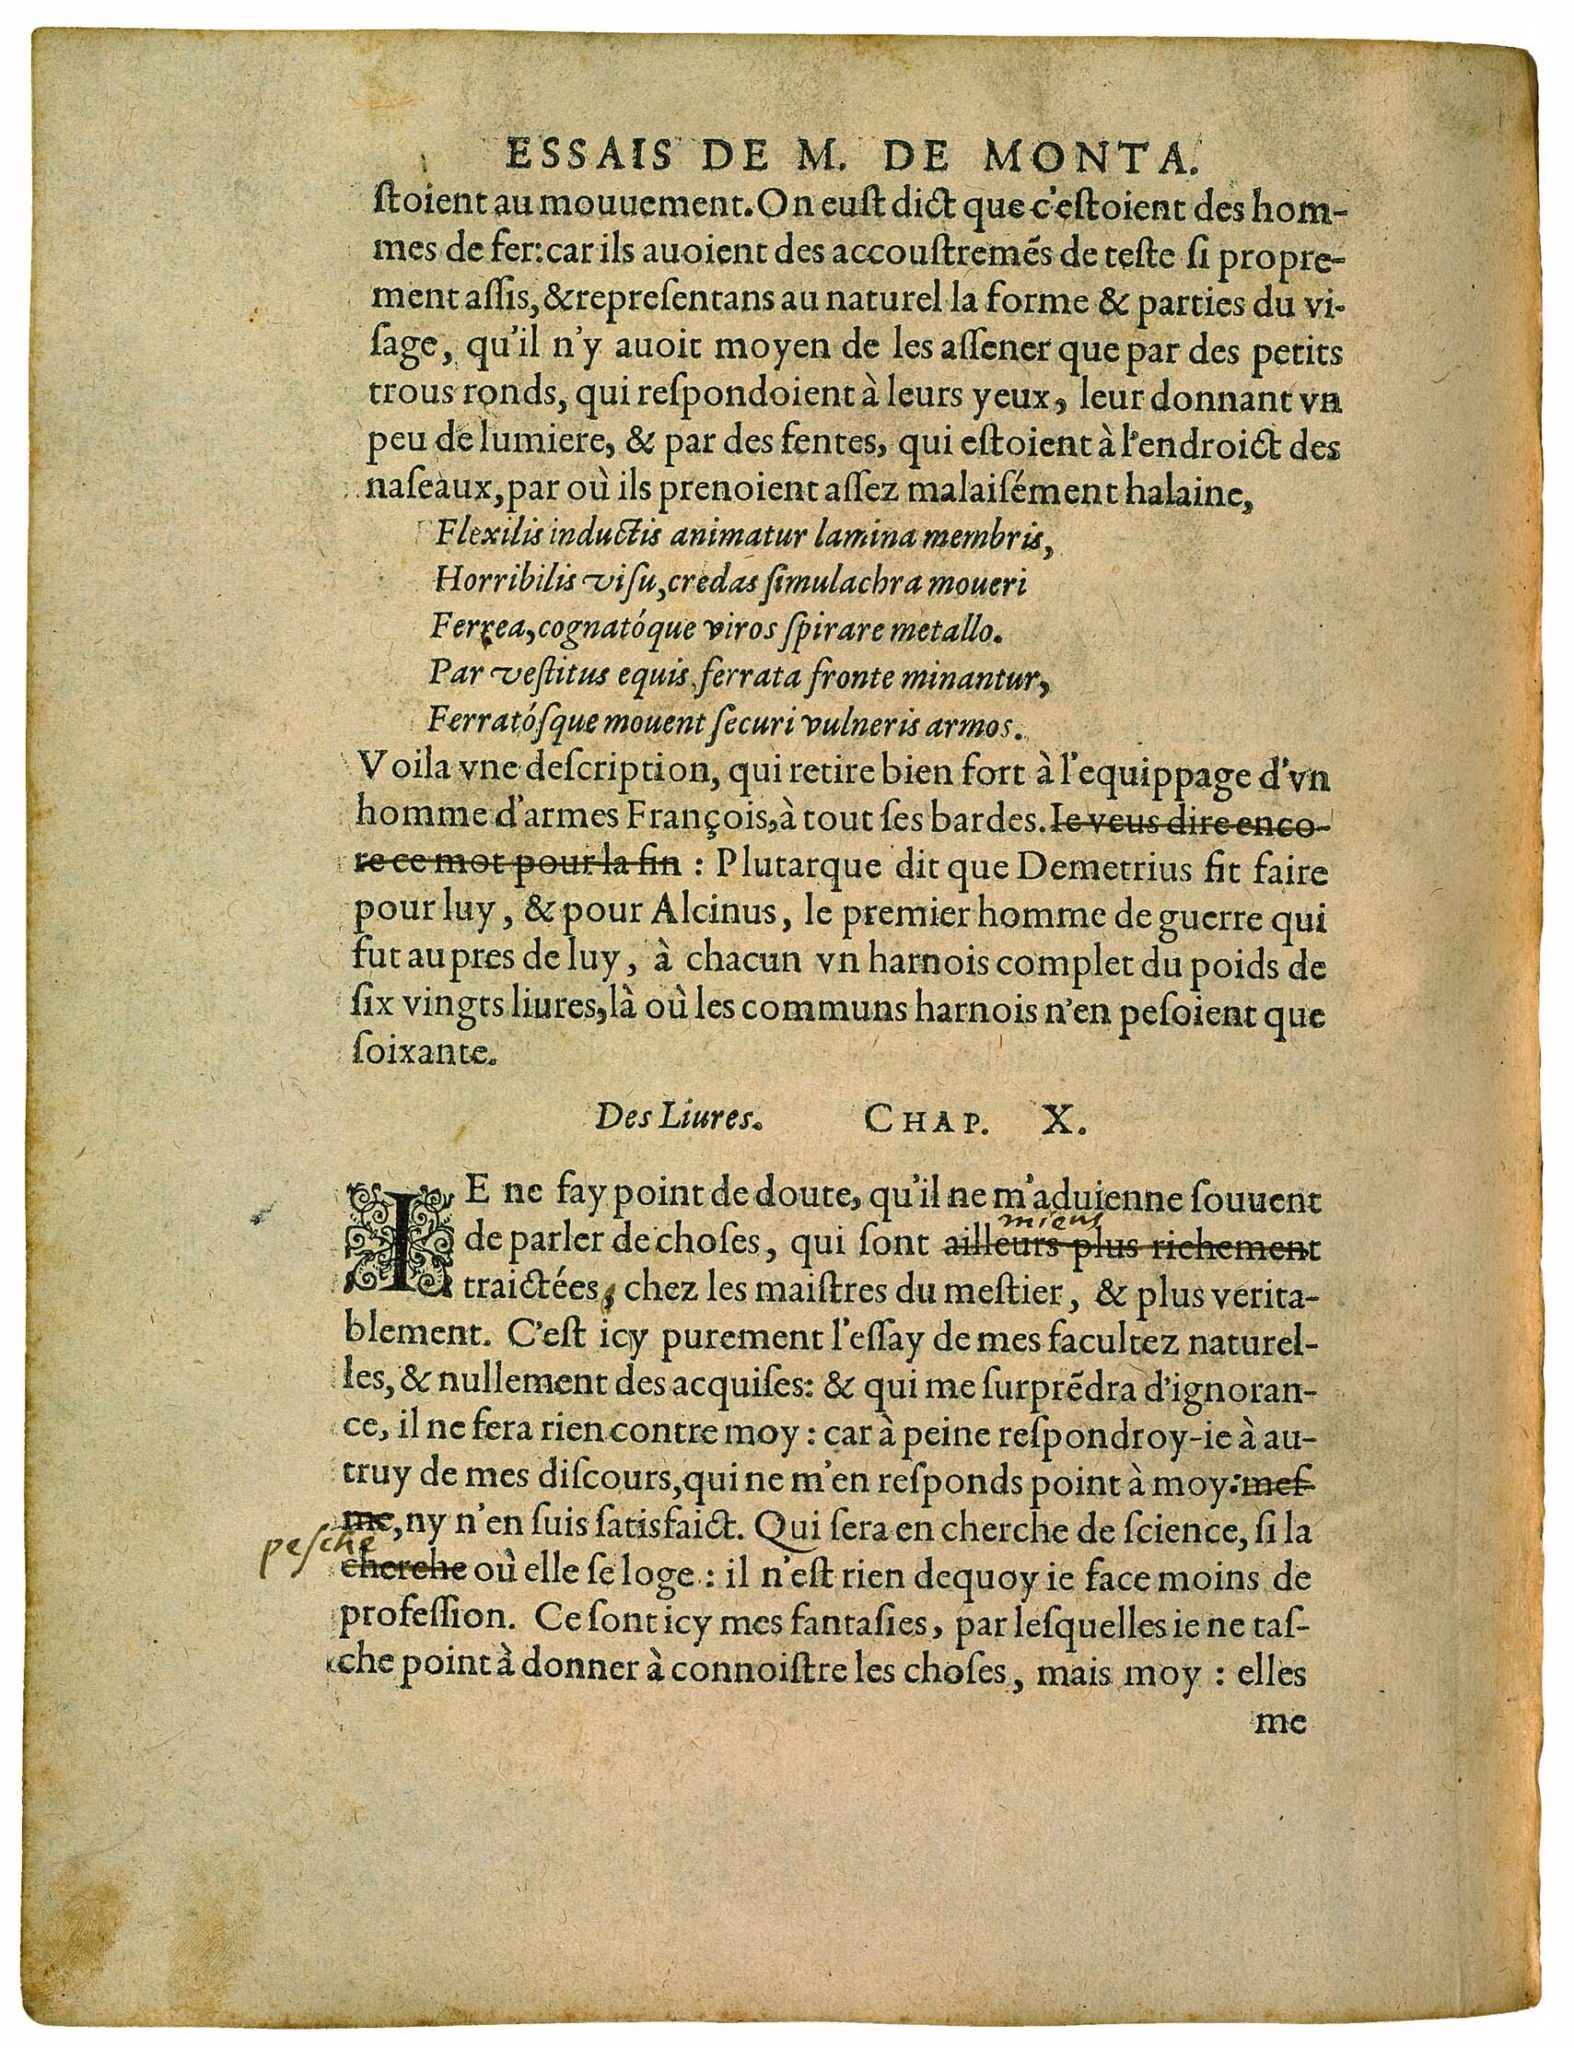 ESSAIS DE M. DE MONTA.
ſtoient au mouuement. On euſt dict que c'eſtoient des hom-
mes de fer: car ils auoient des accouſtremẽs de teſte ſi propre-
ment aſſis, & repreſentans au naturel la forme & parties du vi-
ſage, qu'il n'y auoit moyen de les aſſener que par des petits
trous ronds, qui reſpondoient à leurs yeux, leur donnant vn
peu de lumiere, & par des fentes, qui eſtoient à l'endroict des
naſeaux, par où ils prenoient aſſez malaiſément halaine,
Flexilis inductis animatur lamina membris,
Horribilis viſu, credas ſimulachra moueri
Ferrea, cognatóque viros ſpirare metallo.
Par veſtitus equis, ferrata fronte minantur,
Ferratóſque mouent ſecuri vulneris armos.
Voila vne deſcription, qui retire bien fort à l'equippage d'vn
homme d'armes François, à tout ſes bardes. Ie veus dire enco-
re ce mot pour la fin : Plutarque dit que Demetrius fit faire
pour luy, & pour Alcinus, le premier homme de guerre qui
fut aupres de luy, à chacun vn harnois complet du poids de
ſix vingts liures, là où les communs harnois n'en peſoient que
ſoixante.
Des Liures. CHAP. X.
IE ne fay point de doute, qu'il ne m'aduienne ſouuent
mieus
de parler de choſes, qui ſont ailleurs plus richement
traictées, chez les maiſtres du meſtier, & plus verita-
blement. C'eſt icy purement l'eſſay de mes facultez naturel-
les, & nullement des acquiſes: & qui me ſurprẽdra d'ignoran-
ce, il ne fera rien contre moy : car à peine reſpondroy-ie à au-
truy de mes diſcours, qui ne m'en reſponds point à moy: meſ-
me, ny n'en ſuis ſatisfaict. Qui ſera en cherche de ſcience, ſi la
peſche
cherche où elle ſe loge : il n'eſt rien dequoy ie face moins de
profeſſion. Ce ſont icy mes fantaſies, par leſquelles ie ne taſ-
che point à donner à connoiſtre les choſes, mais moy : elles
me